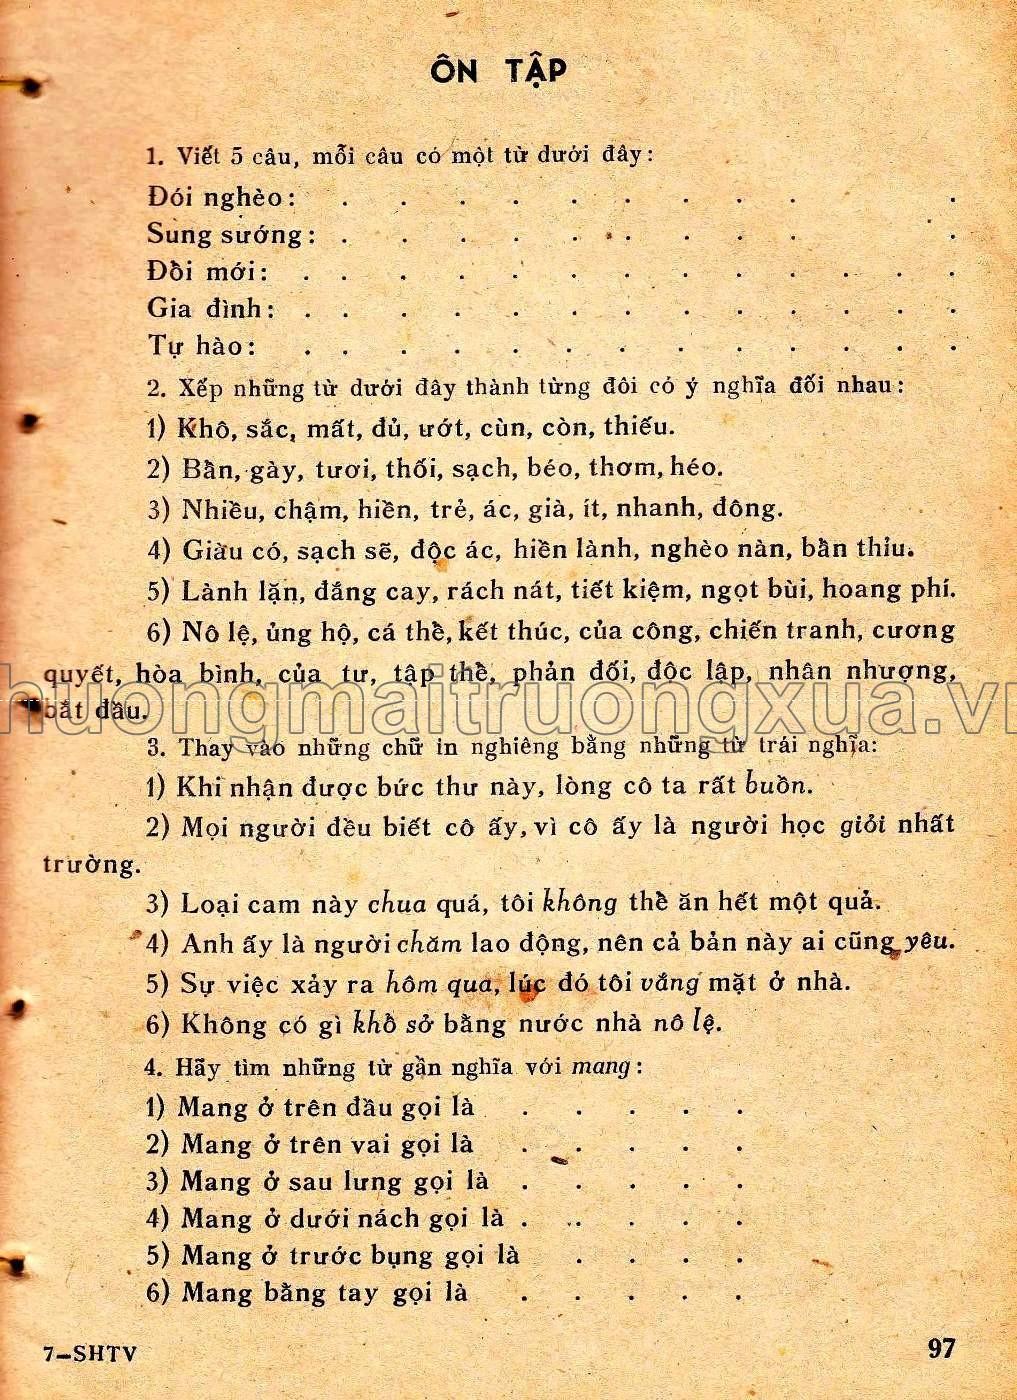 ÔN TẬP
1. Viết 5 câu, mỗi câu có một từ dưới đây:
Đói nghèo: . . . . . . . . . .
Sung sướng: . . . . . . . . . .
Đổi mới: . . . . . . . . . . . . .
Gia đình: . . . . . . . . . . . . .
Tự hào: . . . . . . . . . . . . .
2. Xếp những từ dưới đây thành từng đôi có ý nghĩa đối nhau:
1) Khô, sắc, mất, đủ, ướt, cùn, còn, thiếu.
2) Bẩn, gày, tươi, thối, sạch, béo, thơm, héo.
3) Nhiều, chậm, hiền, trẻ, ác, già, ít, nhanh, đông.
4) Giàu có, sạch sẽ, độc ác, hiền lành, nghèo nàn, bẩn thỉu.
5) Lành lặn, đắng cay, rách nát, tiết kiệm, ngọt bùi, hoang phí.
6) Nô lệ, ủng hộ, cá thể, kết thúc, của công, chiến tranh, cương
quyết, hòa bình, của tư, tập thể, phản đối, độc lập, nhân nhượng,
bắt đầu.
huongmaitruongxua.vn
3. Thay vào những chữ in nghiêng bằng những từ trái nghĩa:
1) Khi nhận được bức thư này, lòng cô ta rất buồn.
2) Mọi người đều biết cô ấy, vì cô ấy là người học giỏi nhất
trường.
3) Loại cam này chua quá, tôi không thể ăn hết một quả.
4) Anh ấy là người chăm lao động, nên cả bản này ai cũng yêu.
5) Sự việc xảy ra hôm qua, lúc đó tôi vắng mặt ở nhà.
6) Không có gì khổ sở bằng nước nhà nô lệ.
4. Hãy tìm những từ gần nghĩa với mang:
1) Mang ở trên đầu gọi là . . . . .
2) Mang ở trên vai gọi là . . . . .
3) Mang ở sau lưng gọi là . . . . .
4) Mang ở dưới nách gọi là . . . . .
5) Mang ở trước bụng gọi là . . . .
6) Mang bằng tay gọi là . . . . .
7—SHTV
97